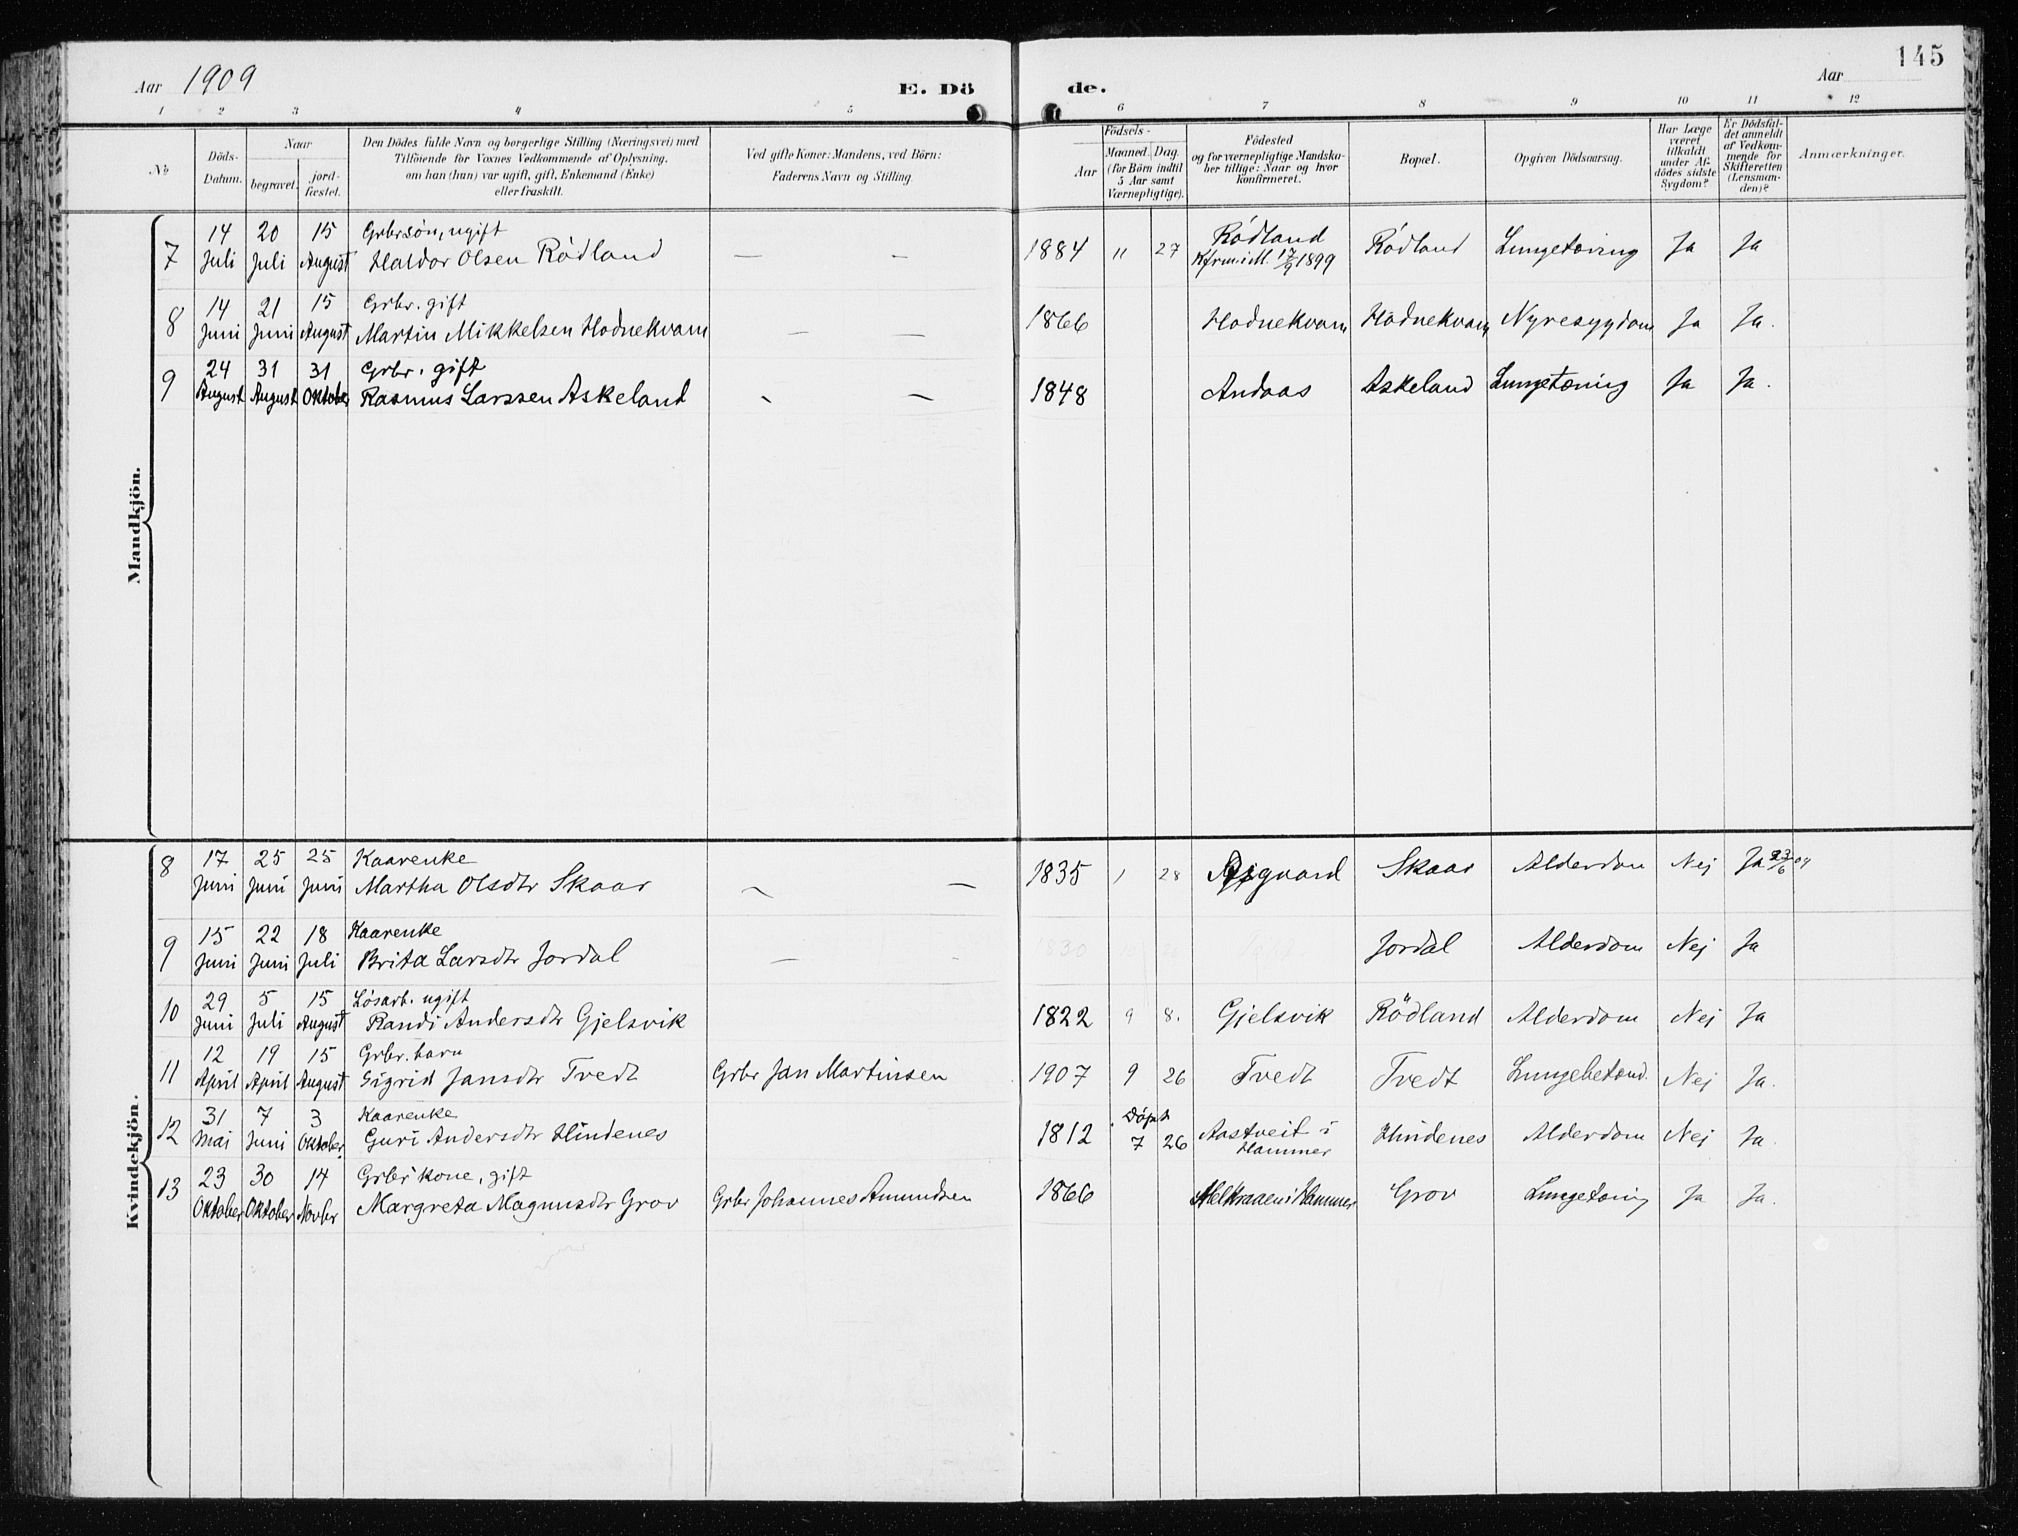 145
Aar 1909 E. Dö de. Aar
1 2 3 4 5 6 7 8 9 10 11 12
No
Döds-
Datum.
Naar
begravet.
jord-
fæstet.
Den Dödes fulde Navn og borgerlige Stilling (Næringsvei) med
Tilföiende for Voxnes Vedkommende af Oplysning,
om han (hun) var ugift, gift, Enkemand (Enke)
eller fraskilt.
Ved gifte Koner: Mandens, ved Börn:
Faderens Navn og Stilling.
Födsels-
Aar
Maaned. Dag.
(for Börn indtil
5 Aar samt
Værnepligtige).
Födested
og for værnepligtige Mandska-
ber tillige: Naar og hvor
konfirmeret.
Bopæl.
Opgiven Dödsaarsag.
Har Læge
været
tilkaldt
under Af-
dödes sidste
Sygdom?
Er Dödsfal-
det anmeldt
af Vedkom-
mende for
Skifteretten
(Lensman-
den)?
Anmærkninger.
Mandkjön.
14 20 15 Grbrsön, ugift Rödland
7 Juli Juli August Haldor Olsen Rödland — — 1884 11 27 Kfrm. i M. 17/9 1899 Rödland Lungetæring Ja Ja
14 21 15 Grbr. gift
8 Juni Juni August Martin Mikkelsen Hodnekvam — — 1866 Hodnekvam Hodnekvam Nyresygdom Ja Ja.
24 31 31 Grbr. gift
9 August August Oktober Rasmus Larssen Askeland — — 1848 Andaas Askeland Lungetæring Ja Ja.
Kvindekjön.
17 25 25 Kaarenke
8 Juni Juni Juni Martha Olsdtr Skaar — — 1835 1 28 Skaar Alderdom Nej Ja 23/6 09
15 22 18 Kaarenke
9 Juni Juni Juli Brita Larsdtr Jordal — 1830 Jordal Alderdom Nej Ja
29 5 15 Løsarb. ugift
10 Juni Juli August Randi Andersdtr Gjelsvik 1822 9 8. Gjelsvik Rödland Alderdom Nej Ja
12 19 15 Grbr. barn
11 April April August Sigrid Jansdtr Tvedt Grbr Jan Martinsen 1907 9 26 Tvedt Tvedt Lungebetænd. Nej Ja.
31 7 3 Kaarenke Döpt
12 Mai Juni Oktober. Guri Andersdtr Hindenes 1812 7 26 Aastveit i Hammer Hindenes Alderdom Nej Ja.
23 30 14 Grbr kone, gift
13 Oktober Oktober Novbr Margreta Magnusdtr Grov Grbr Johannes Amundsen 1866 i Hammer Grov Lungetæring Ja Ja.